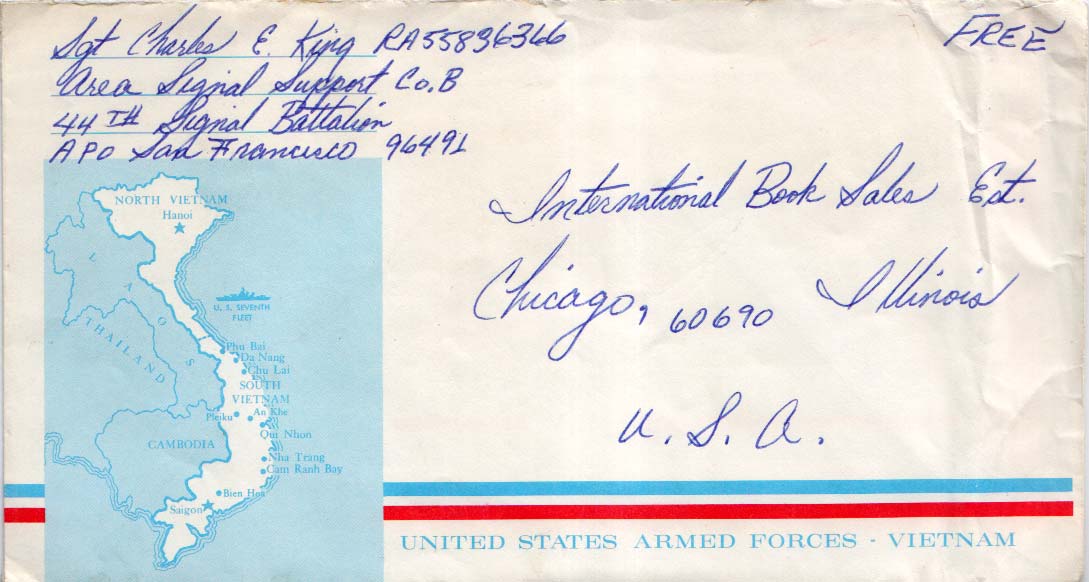 Sgt Charles E. King RA55836366
Area Signal Support Co.B
44TH Signal Battalion
APO San Francisco 96491
FREE
International Book Sales Est.
Chicago, 60690 Illinois
U. S. A.
NORTH VIETNAM
Hanoi
LAOS
THAILAND
U. S. SEVENTH
FLEET
Phu Bai
Da Nang
Chu Lai
SOUTH
VIETNAM
Pleiku
An Khe
Qui Nhon
CAMBODIA
Nha Trang
Cam Ranh Bay
Bien Hoa
Saigon
UNITED STATES ARMED FORCES - VIETNAM